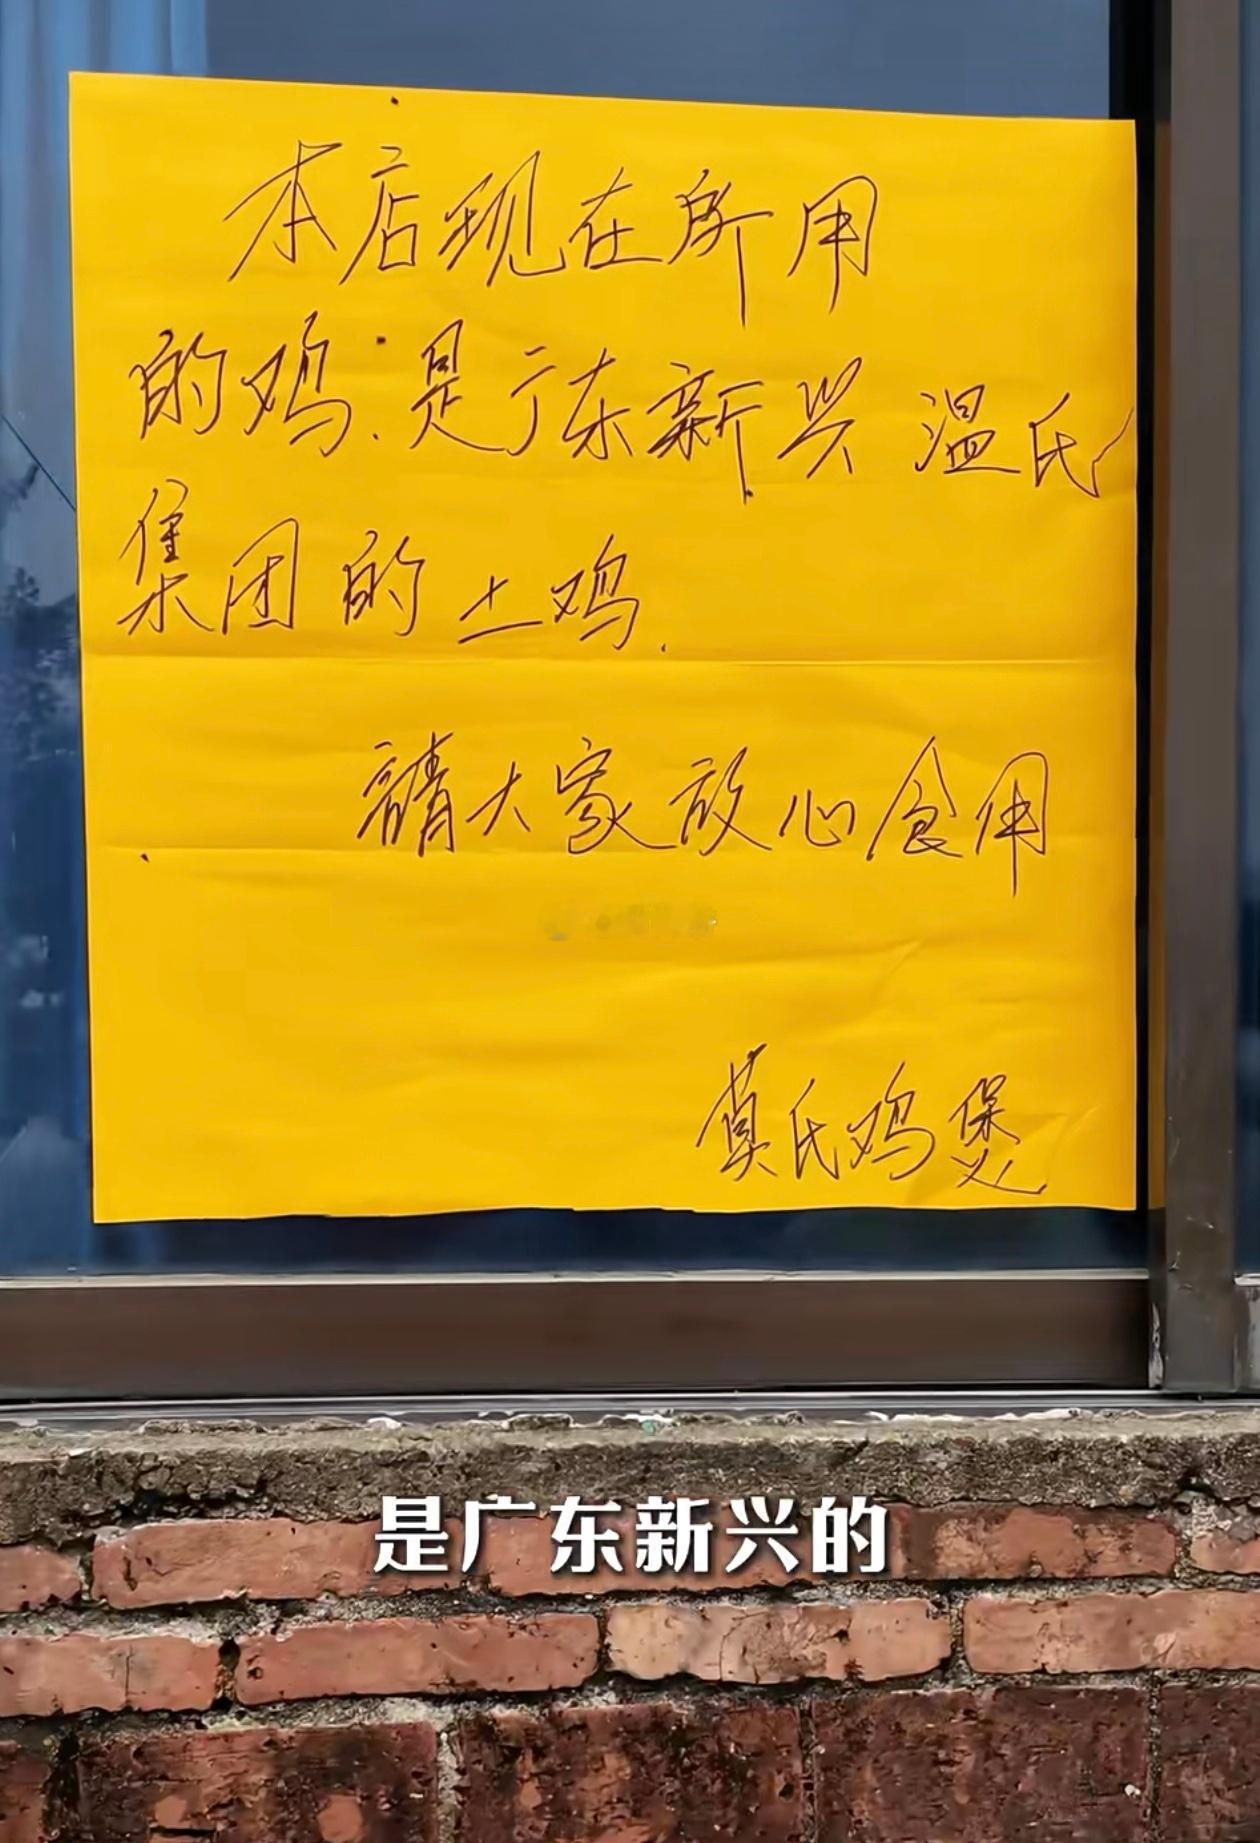 本店现在所用
的鸡.是广东新兴温氏
集团的土鸡.
請大家放心食用
莫氏鸡煲
是广东新兴的